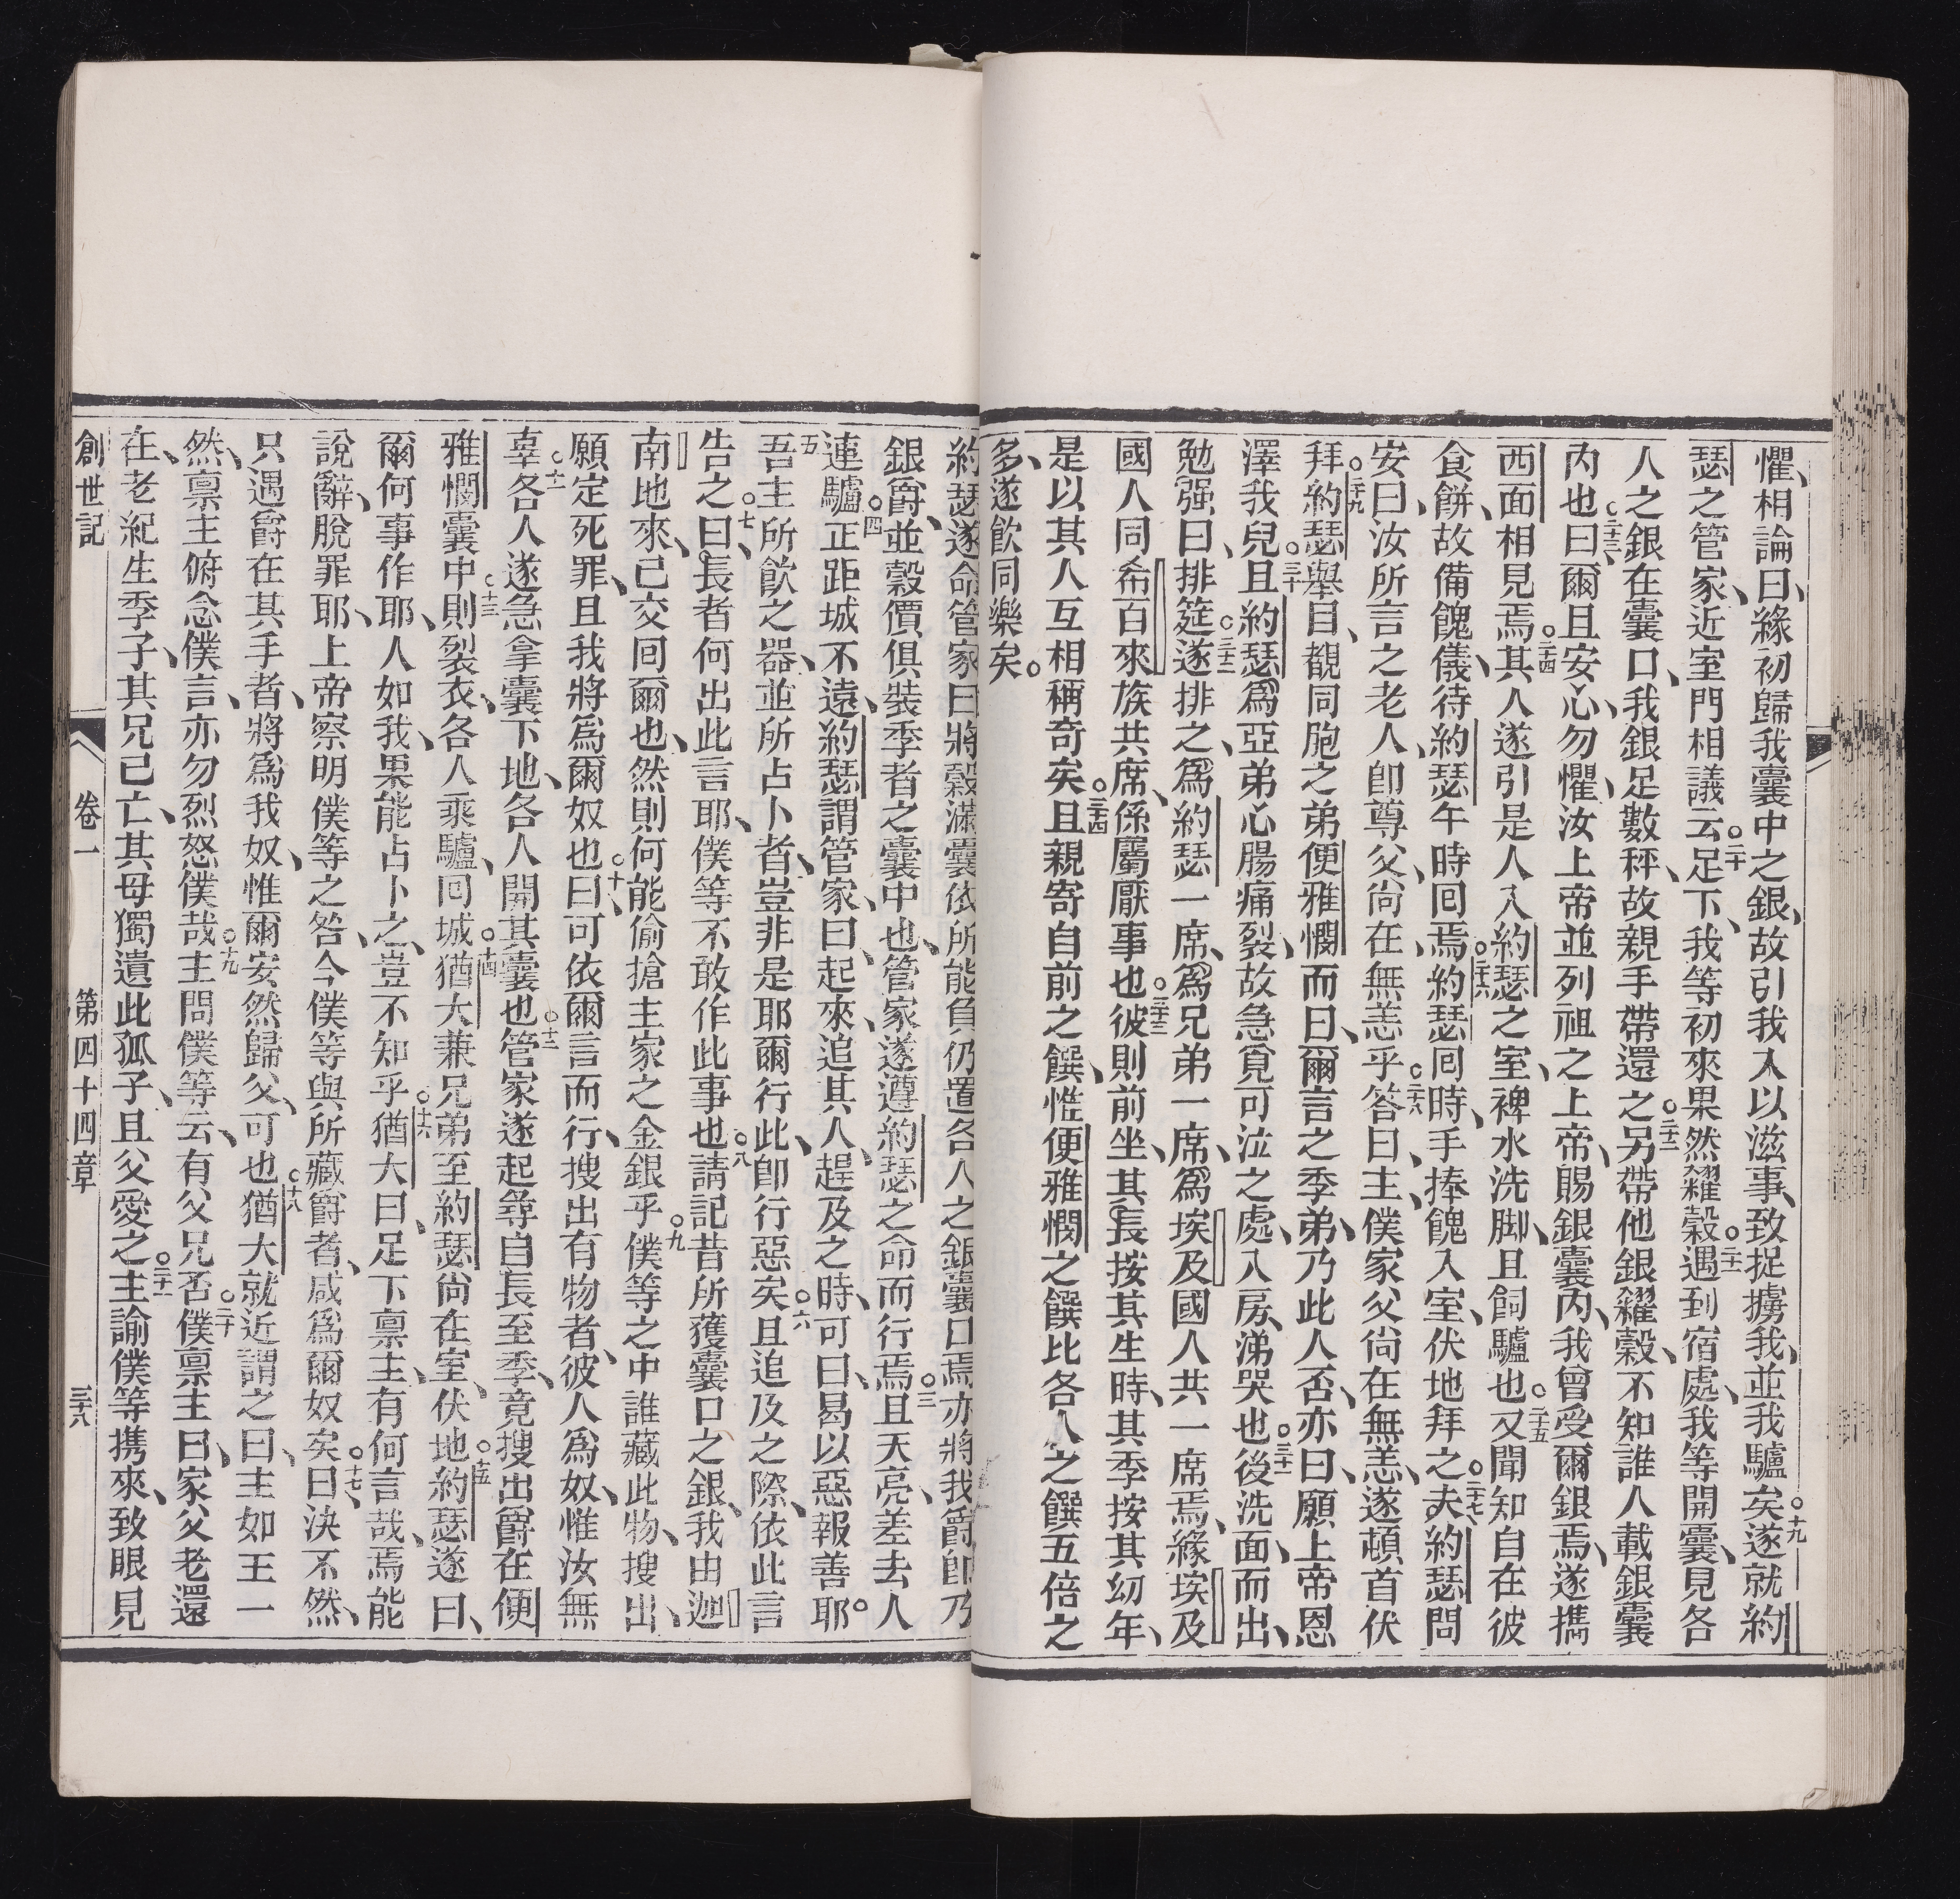 懼、相論曰、緣初歸我囊中之銀、故引我入以滋事、致捉擄我、並我驢矣○十九遂就約
瑟之管家、近室門相議云○二十足下、我等初來果然糴穀○二十一遇到宿處、我等開囊、見各
人之銀在囊口、我銀足數秤、故親手帶還之○二十二另帶他銀糴穀、不知誰人載銀囊
內也○二十三曰爾且安心、勿懼、汝上帝並列祖之上帝、賜銀囊內、我曾受爾銀焉、遂攜
西面相見焉○二十四其人遂引是人入約瑟之室、裨水洗脚、且飼驢也○二十五又聞知自在彼
食餅、故備餽儀、待約瑟午時回焉○二十六約瑟回時、手捧餽入室、伏地拜之○二十七夫約瑟問
安曰、汝所言之老人、卽尊父、尙在、無恙乎○二十八答曰、主、僕家父尙在無恙、遂頓首伏
拜○二十九約瑟舉目、覩同胞之弟便雅憫而曰、爾言之季弟、乃此人否、亦曰、願上帝恩
澤我兒○三十且約瑟爲亞弟心腸痛裂、故急覓可泣之處、入房、涕哭也○三十一後洗面而出、
勉强曰、排筵○三十二遂排之、爲約瑟一席、爲兄弟一席、爲埃及國人共一席焉、緣埃及
國人同希百來族共席、係屬厭事也○三十三彼則前坐、其長按其生時、其季按其幼年、
是以其人互相稱奇矣○三十四且親寄自前之饌、惟便雅憫之饌比各人之饌五倍之
多、遂飮同樂矣。
約瑟遂命管家曰將穀滿囊依所能負仍置各人之銀囊口焉○二亦將我爵卽乃
銀爵、並穀價俱裝季者之囊中也、管家遂遵約瑟之命而行焉○三且天亮、差去人
連驢○四正距城不遠、約瑟謂管家、曰、起來、追其人、趕及之時、可曰、曷以惡報善耶。
○五吾主所飮之器、並所占卜者、豈非是耶爾行此、卽行惡矣○六且追及之際、依此言
告之○七曰、長者何出此言耶、僕等不敢作此事也○八請記昔所獲囊口之銀、我由迦
南地來、已交回爾也、然則何能偷搶主家之金銀乎○九僕等之中誰藏此物、搜出、
願定死罪、且我將爲爾奴也○十曰、可依爾言而行、搜出有物者、彼人爲奴、惟汝無
辜○十一各人遂急拿囊下地、各人開其囊也○十二管家遂起等自長至季、竟搜出爵在便
雅憫囊中○十三則裂衣、各人乘驢、回城○十四猶大兼兄弟至約瑟尙在室、伏地○十五約瑟遂曰、
爾何事作耶、人如我、果能占卜之、豈不知乎○十六猶大曰、足下稟主、有何言哉、焉能
說辭、脫罪耶、上帝察明僕等之咎、今僕等與所藏爵者、咸爲爾奴矣○十七曰、決不然、
只遇爵在其手者、將爲我奴、惟爾安然歸父、可也○十八猶大就近謂之曰、主如王一
然、稟主俯念僕言、亦勿烈怒僕哉○十九主問僕等、云、有父兄否○二十僕稟主曰、家父老還
在、老紀生季子、其兄已亡、其母獨遺此孤子、且父愛之○二十一主諭僕等携來、致眼見
創世記 卷一 第四十四章 三十八